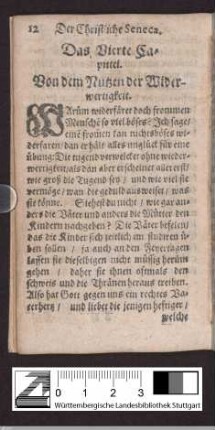 12 Der Christliche Seneca.
Das Vierte Ca-
pittel.
Von dem Nutzen der Wider-
wertigkeit.
WArům widerfäret doch frommen
Mensché so viel böses? Ich sage/
eine frommen kan nichts böses wi-
derfaren: dan er hält alles unglück für eine
übung: Die tugend verwelcket ohne wieder-
wertigkeit: als dan aber erscheinet aller erst/
wie groß die Tugend sey / und wie viel sie
vermöge/ wan die geduld ausweiset / was
sie könne. Siehest du nicht / wie gar an-
ders die Väter und anders die Mütter den
Kindern nachgeben? Die Väter befelen/
das die Kinder sich zeitlich im studiren ü-
ben sollen / ja auch an den Feyertagen
lassen sie dieselbigen nicht müssig herüm
gehen / daher sie ihnen oftmals den
schweis und die Thränen heraus treiben.
Also hat Gott gegen uns ein rechtes Va-
terhertz / und lieber die jenigen heftiger/
welche
0 1 2 3
Württembergische Landesbibliothek Stuttgart